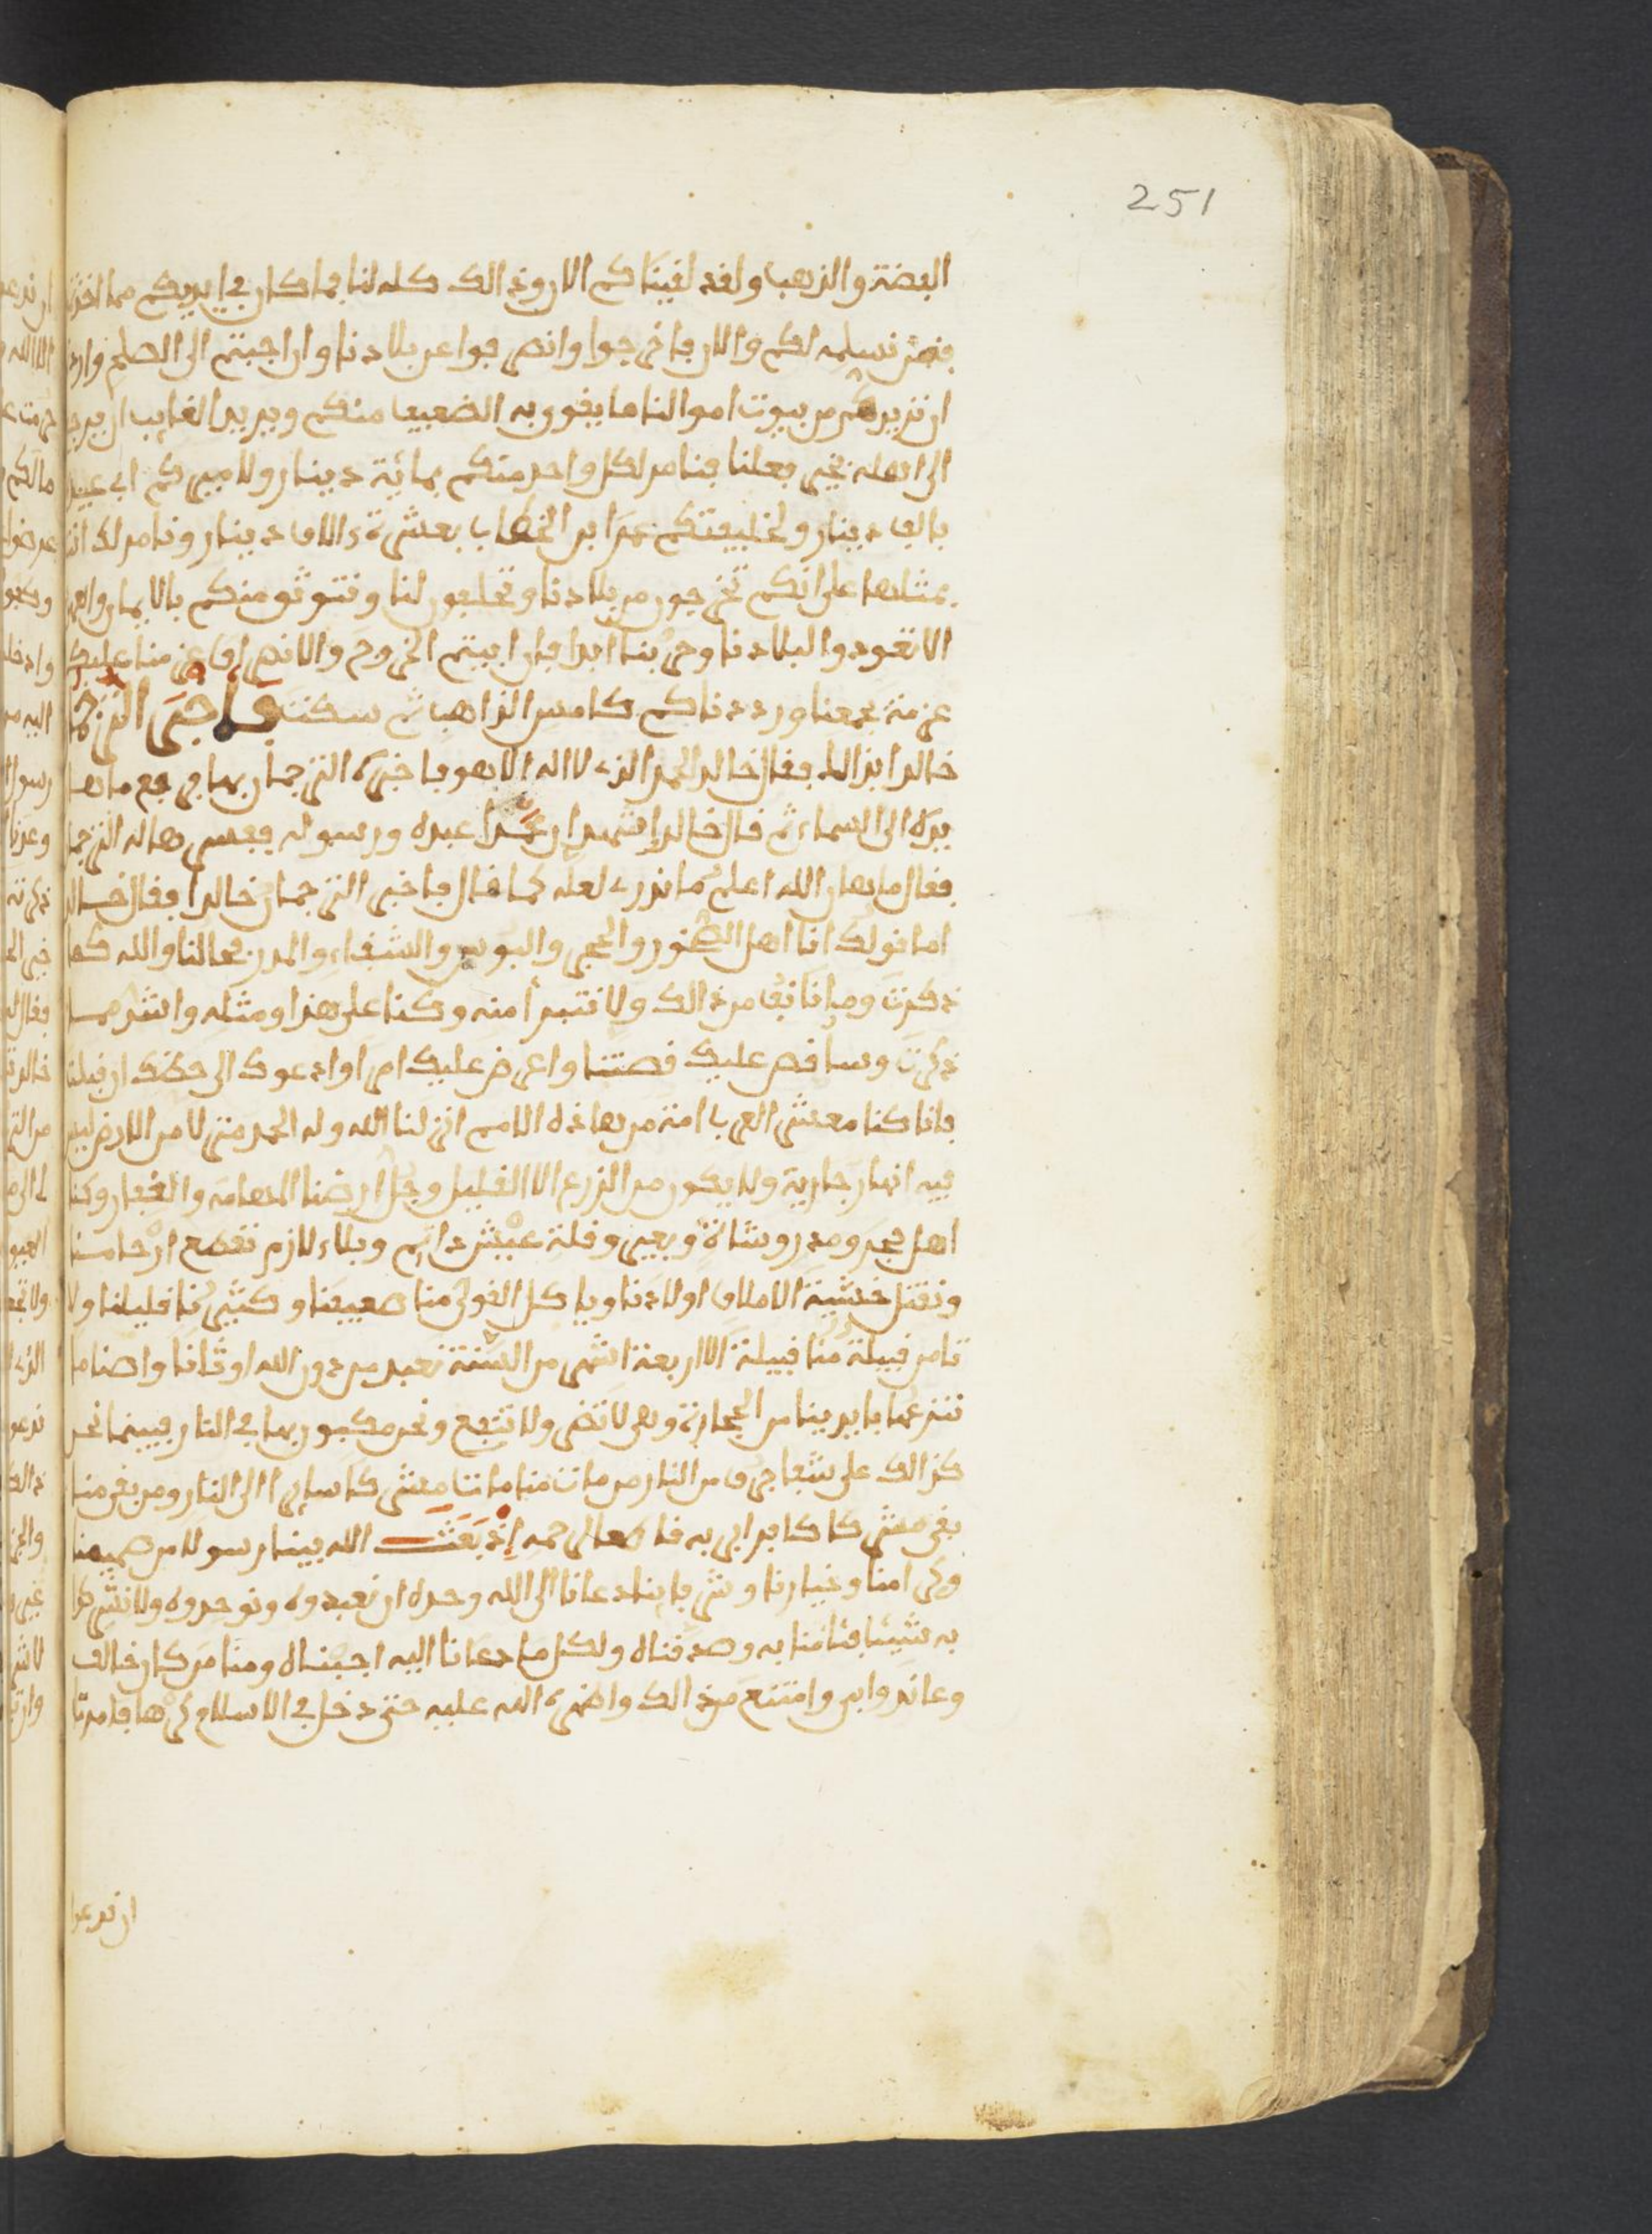 251
الفضة والذهب ولقد لقيناكم الان وذالك كله لنا فما كان في ايديكم مما اخذتم
فنحن نسلمه لكم والا فاخرجوا وانصرفوا عن بلادنا وان اجبتم الى الصلح واردتم
ان نزيدكم من بيوت اموالنا ما يقوى به الضعيف منكم ويريد الغايب ان يرجع
الى اهله بخير فعلنا فنامر لكل واحد منكم بمائة دينار ولاميركم ابي عبيدة
بالف دينار ولخليفتكم عمر ابن الخطاب بعشرة ءالاف دينار ونامر لك انت
بمثلها على انكم تخرجون من بلادنا وتحلفون لنا ونتوثق منكم بالايمان والعهد
الا تعودوا لبلادنا وحربنا ابدا فان ابيتم الخروج والانصراف عزمنا عليكم
عزمة بجمعنا ورددناكم كامس الذاهب ثم سكت فاخبر الترجمان
خالدا بذالك فقال خالد الحمد لله الذي لا اله الا هو فاخبره الترجمان بها فرفع ماهان
يده الى السماء ثم قال خالد اشهد ان محمدا عبده ورسوله ففسرها له الترجمان
فقال ماهان الله اعلم ما ندري لعله كما قال فاخبر الترجمان خالدا فقال خالد
اما قولك انا اهل الصخور والحجر والبوس والشقاء والمدر فحالنا والله كما
ذكرت وما ننفي من ذالك ولا نتبرأ منه وكنا على هذا ومثله واشد مما
ذكرت وساقص عليك قصتنا واعرض عليك امري وادعوك الى حظك ان قبلت
فانا كنا معشر العرب امة من هاذه الامم انزلنا الله وله الحمد منزلا من الارض ليس
فيه انهار جارية ولا يكون من الزرع الا القليل وجل ارضنا المهامه والقفار وكنا
اهل حجر ومدر وشاة وبعير وقلة عيش دائم وبلاء لازم نقطع ارحامنا
ونقتل خشية الاملاق اولادنا وياكل القوي منا ضعيفنا وكثيرنا قليلنا ولا
تامن قبيلة منا قبيلة الا اربعة اشهر من السنة نعبد من دون الله اوثانا واصناما
ننحتها بايدينا من الحجارة وهي لا تضر ولا تنفع ونحن مكبون بها في النار فبينما نحن
كذالك على شفا جرف من النار من مات منا مات مشركا سائرا الى النار ومن بقي منا
بقي مشركا كافرا بربه قاطعا لرحمه اذ بعث الله بينا رسولا من صميمنا
وكرامنا وخيارنا وشرفاينا دعانا الى الله وحده ان نعبدوه ونوحدوه ولا نشرك
به شيئا فئامنا به وصدقناه ولكل ما دعانا اليه اجبناه ومنا من كان خالف
وعاند وابى وامتنع من ذالك واظهره الله عليه حتى دخل في الاسلام كرها فامرنا
ان ندعوا